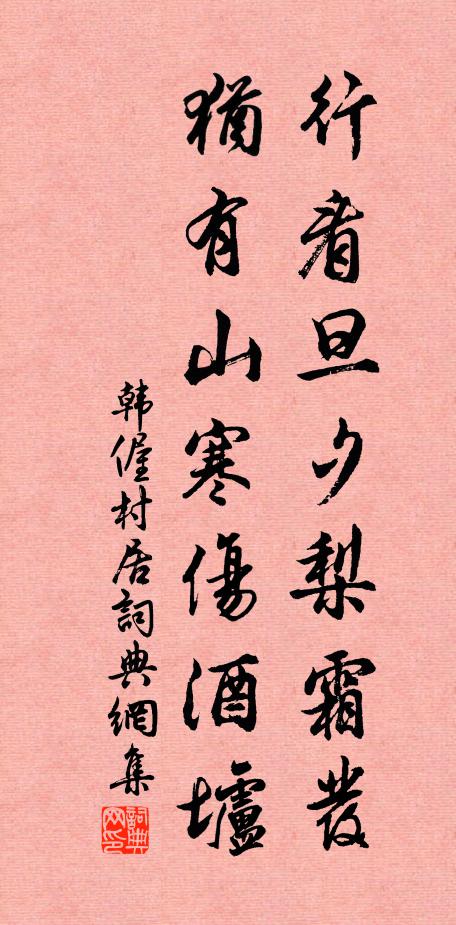 行看旦夕梨霜發
猶有山寒傷酒壚
韩偓村居詞典網集
詞典网印